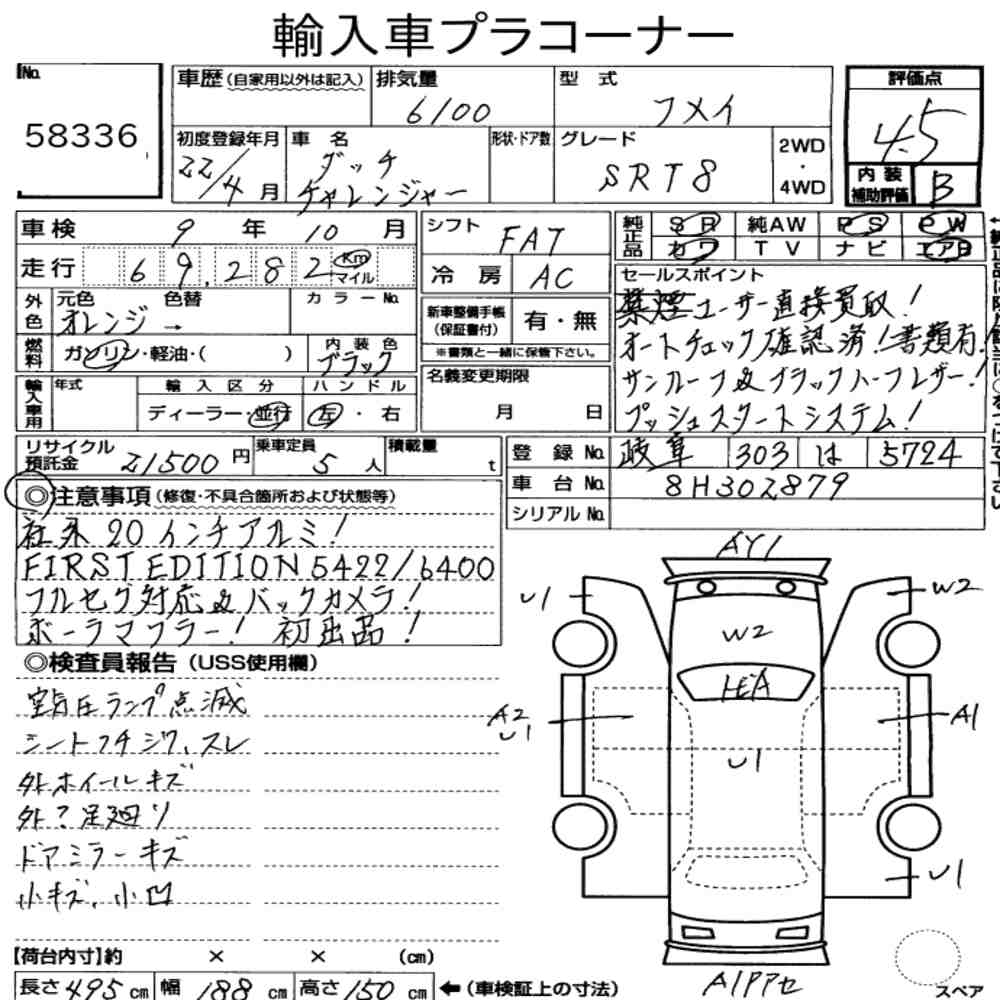 輸入車プラコーナー
No.
58336
車歴(自家用以外は記入)
排気量
6100
型 式
フメイ
評価点
4.5
初度登録年月
22/4月
車 名
ダッチ
チャレンジャー
形状・ドア数
グレード
SRT8
2WD
・
4WD
内装
補助評価
B
車検 9 年 10 月
走行 69,282 Km
マイル
シフト
FAT
冷 房 AC
純正品
SR 純AW PS PW
カワ TV ナビ エアB
外色
元色 色替
オレンジ →
カラーNo.
燃料
ガソリン・軽油・( )
内装色
ブラック
新車整備手帳
(保証書付)
有・無
※書類と一緒に保管下さい。
セールスポイント
禁煙ユーザー直接買取!
オートチェック確認済!書類有!
サンルーフ&ブラックハーフレザー!
プッシュスタートシステム!
輸入車用
年式
輸入区分
ハンドル
ディーラー・並行
左・右
名義変更期限
月 日
リサイクル
預託金
21500円
乗車定員
5人
積載量
t
登録No. 岐阜 303 は 5724
車台No. 8H302879
シリアルNo.
◎注意事項(修復・不具合箇所および状態等)
社外 20インチアルミ!
FIRST EDITION 5422/6400
フルセグ対応&バックカメラ!
ボーラマフラー! 初出品!
◎検査員報告(USS使用欄)
空気圧ランプ点滅
シートフチシワ、スレ
外ホイールキズ
外?足廻り
ドアミラーキズ
小キズ、小凹
AY1
U1
W2
W2
A2
U1
A1
U1
U1
【荷台内寸】約 × × (cm)
長さ495cm 幅188cm 高さ150cm ←(車検証上の寸法)
スペア